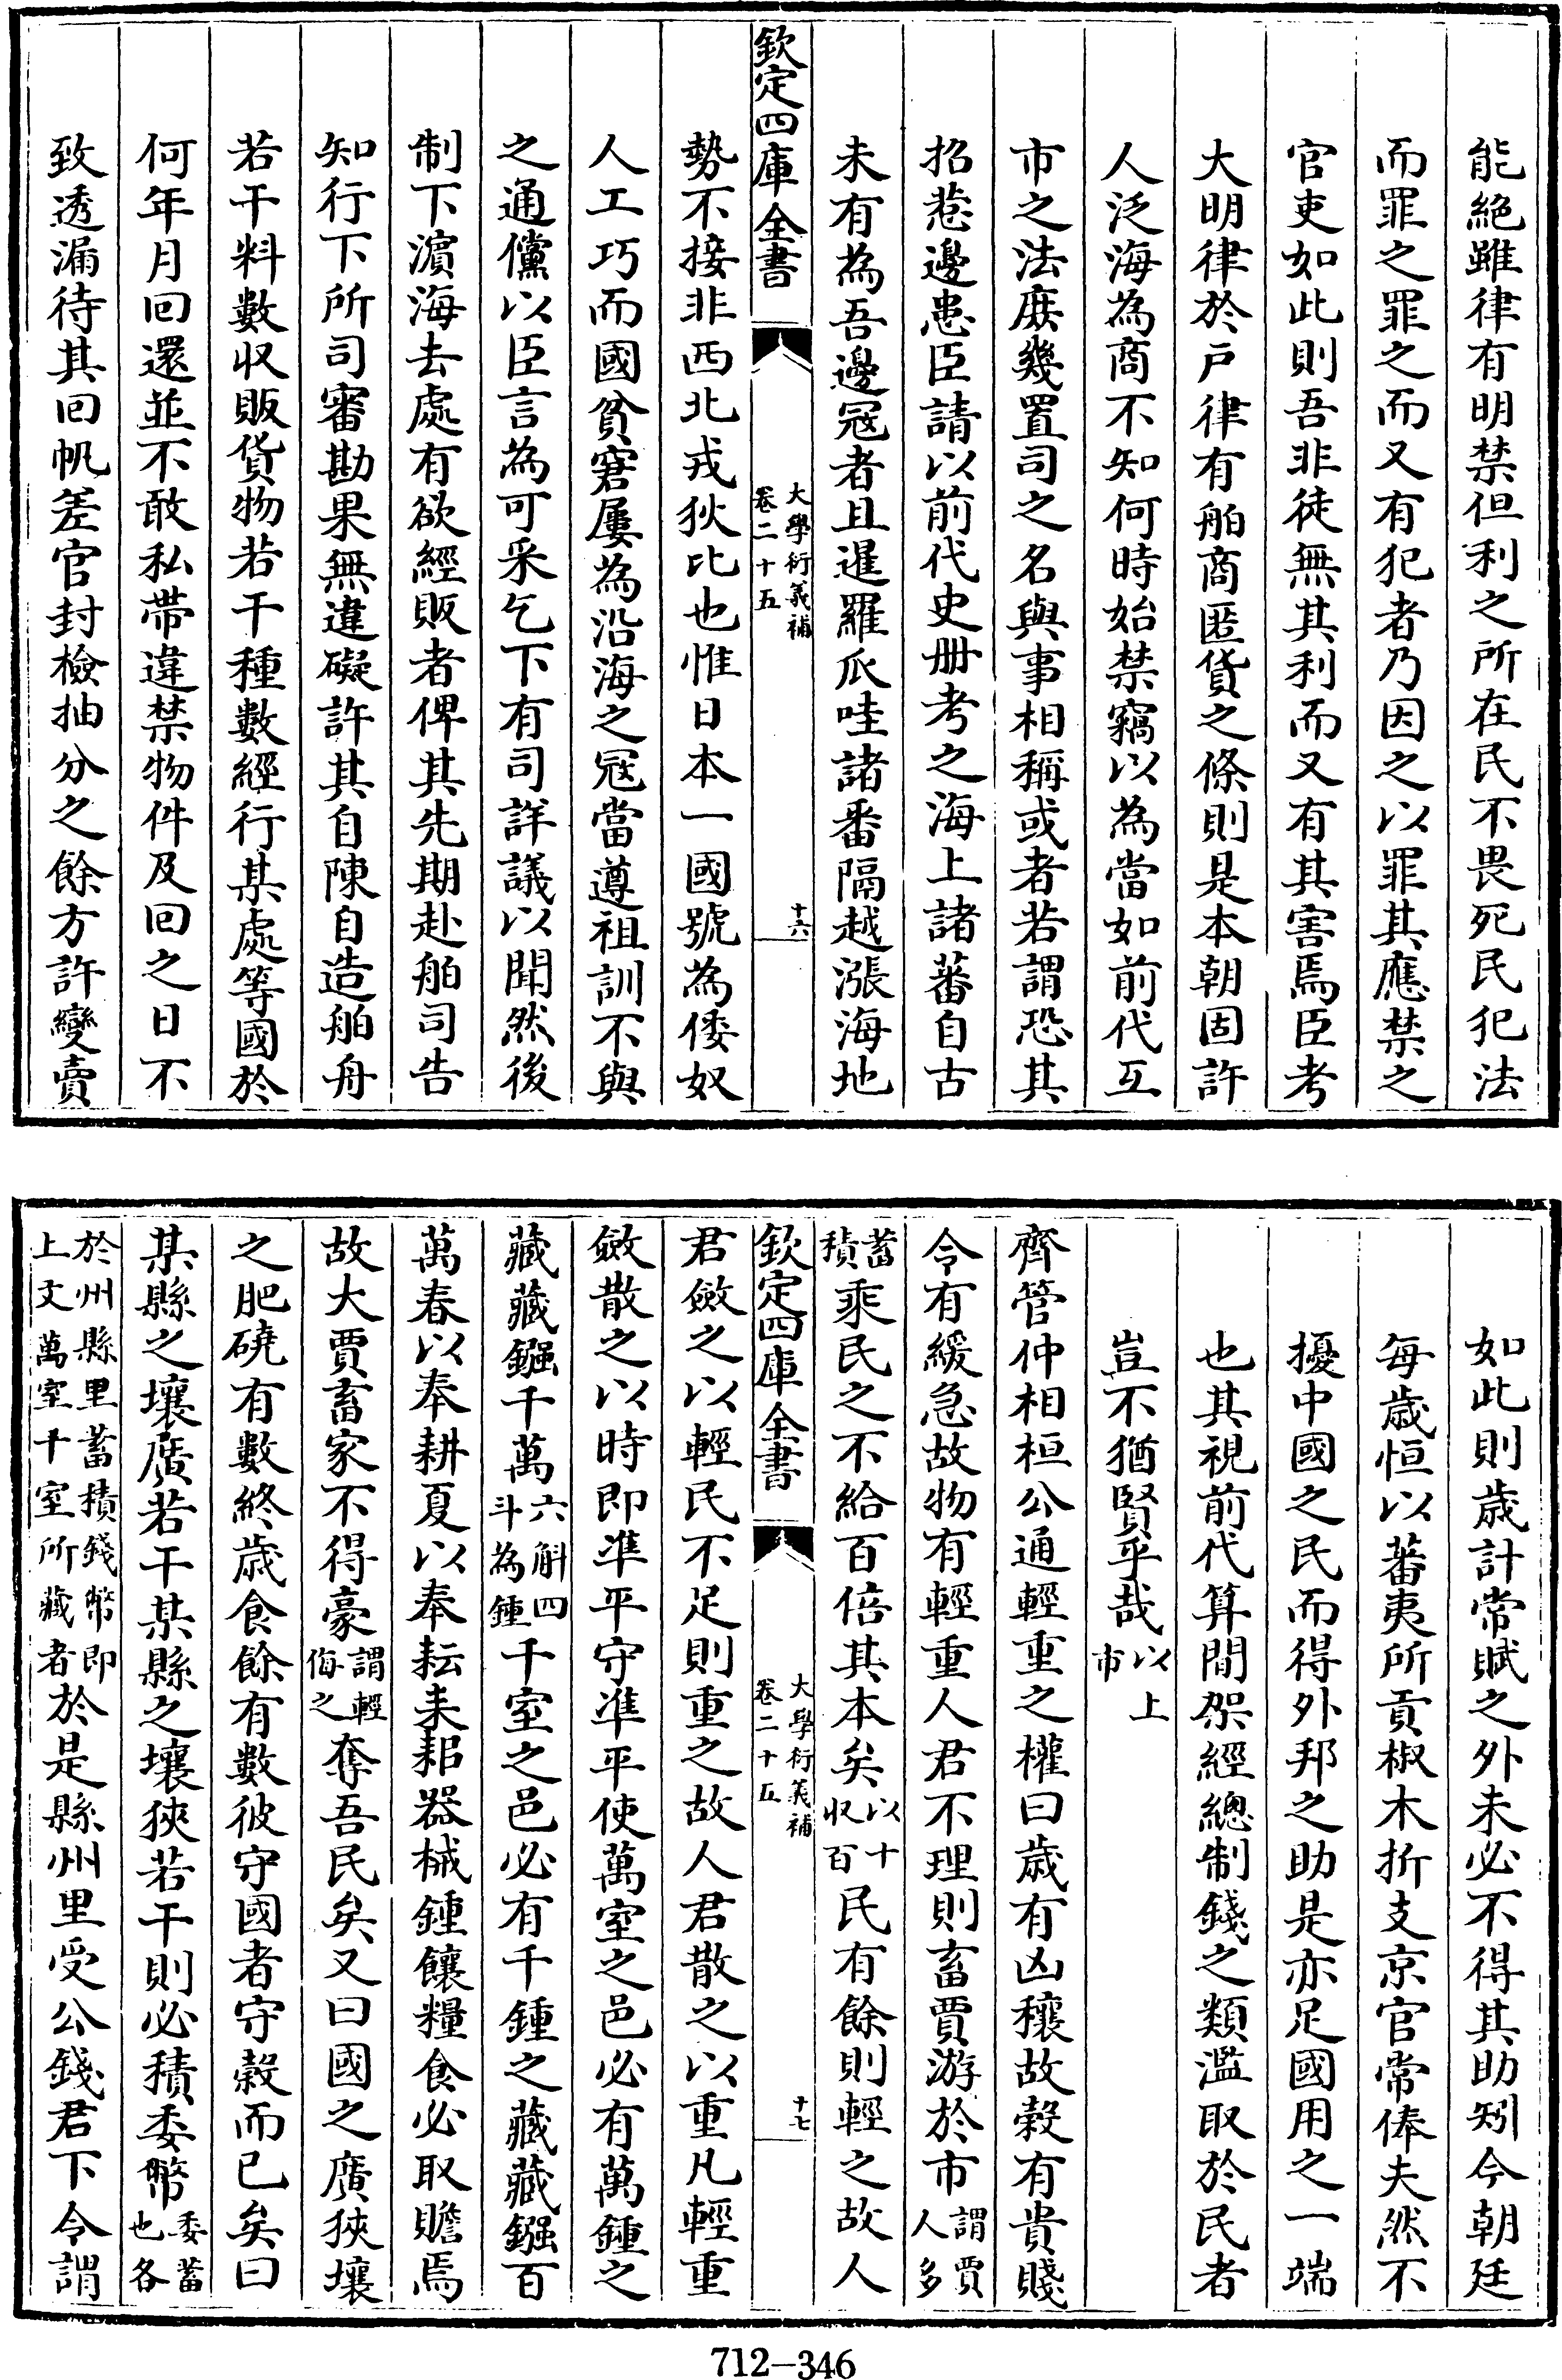 能絶雖律有明禁但利之所在民不畏死民犯法
而罪之罪之而又有犯者乃因之以罪其應禁之
官吏如此則吾非徒無其利而又有其害焉臣考
大明律於戶律有舶商匿貨之條則是本朝固許
人泛海為商不知何時始禁竊以為當如前代互
市之法庶幾置司之名與事相稱或者若謂恐其
招惹邊患臣請以前代史册考之海上諸蕃自古
未有為吾邊冦者且暹羅爪哇諸番隔越漲海地
欽定四庫全書
大學衍義補
卷二十五
十六
勢不接非西北戎狄比也惟日本一國號為倭奴
人工巧而國貧窘屢為沿海之冦當遵祖訓不與
之通儻以臣言為可采乞下有司詳議以聞然後
制下濵海去處有欲經販者俾其先期赴舶司告
知行下所司審勘果無違礙許其自陳自造舶舟
若干料數收販貨物若干種數經行某處等國於
何年月回還並不敢私帶違禁物件及回之日不
致透漏待其回帆差官封檢抽分之餘方許變賣
如此則歳計常賦之外未必不得其助矧今朝廷
每歳恒以蕃夷所貢椒木折支京官常俸夫然不
擾中國之民而得外邦之助是亦足國用之一端
也其視前代算間架經總制錢之類濫取於民者
豈不猶賢乎哉以上市
齊管仲相桓公通輕重之權曰歳有凶穰故榖有貴賤
令有緩急故物有輕重人君不理則畜賈游於市謂賈人多
蓄積乘民之不給百倍其本矣以十收百民有餘則輕之故人
欽定四庫全書
大學衍義補
卷二十五
十七
君斂之以輕民不足則重之故人君散之以重凡輕重
斂散之以時即準平守準平使萬室之邑必有萬鍾之
藏藏鏹千萬六斛四斗為鍾千室之邑必有千鍾之藏藏鏹百
萬春以奉耕夏以奉耘耒耜器械鍾饟糧食必取贍焉
故大賈畜家不得豪謂輕侮之奪吾民矣又曰國之廣狹壤
之肥磽有數終歳食餘有數彼守國者守榖而已矣曰
某縣之壤廣若干某縣之壤狹若干則必積委幣委蓄也各
於州縣里蓄積錢幣即上文萬室千室所藏者於是縣州里受公錢君下令謂
712-346